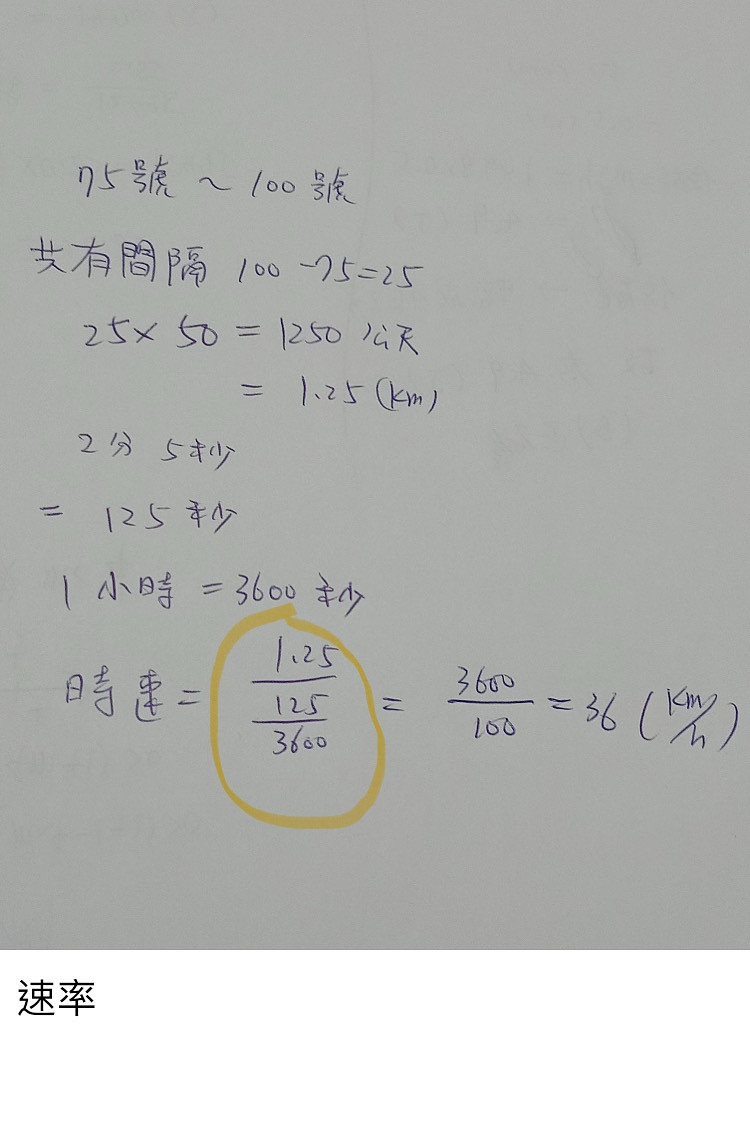 75號 ~ 100號
共有間隔 100-75=25
25× 50 = 1250 公尺
= 1.25 (km)
2分 5秒
= 125 秒
1 小時 = 3600 秒
時速 = 1.25/(125/3600) = 3600/100 = 36 (km/h)
速率